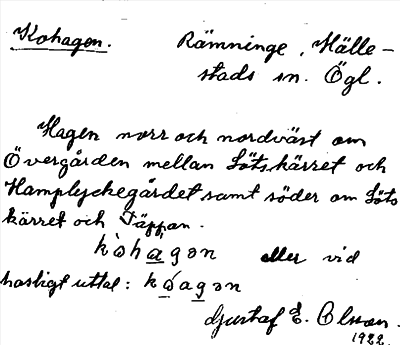 Kohagen. Rämninge, Hälle-
stads sn. Ögl.
Hagen norr och nordväst om
Övergården mellan Lötskärret och
Hamplyckegärdet samt söder om Löts
kärret och Täppan.
kòhagən eller vid
hastigt uttal: kóagən
Gustaf E. Olsson.
1922.